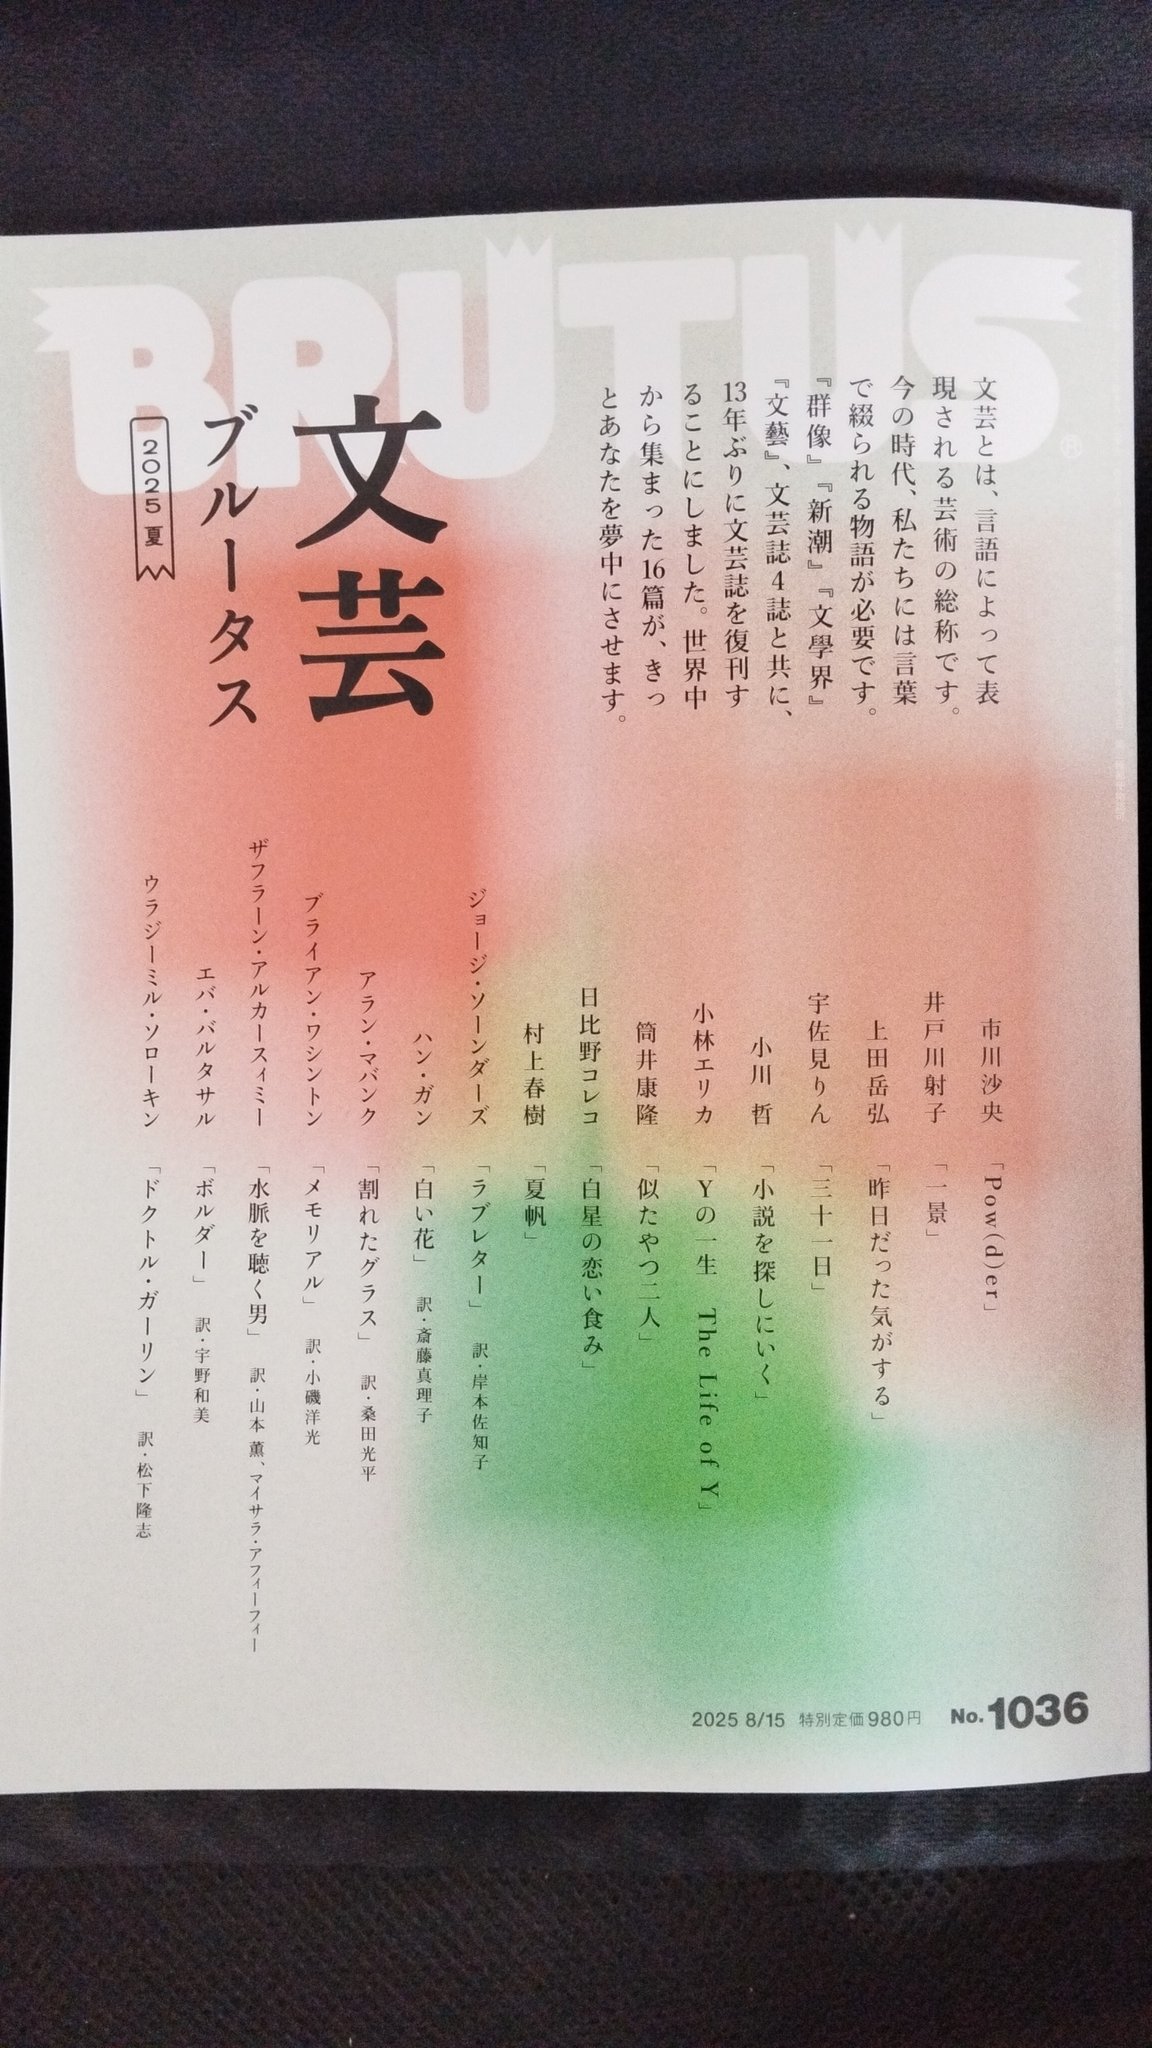 BRUTUS
®
文芸とは、言語によって表
現される芸術の総称です。
今の時代、私たちには言葉
で綴られる物語が必要です。
『群像』『新潮』『文學界』
『文藝』、文芸誌4誌と共に、
13年ぶりに文芸誌を復刊す
ることにしました。世界中
から集まった16篇が、きっ
とあなたを夢中にさせます。
文芸
ブルータス
2025 夏
市川沙央 「Pow(d)er」
井戸川射子 「一景」
上田岳弘 「昨日だった気がする」
宇佐見りん 「三十一日」
小川 哲 「小説を探しにいく」
小林エリカ 「Yの一生 The Life of Y」
筒井康隆 「似たやつ二人」
日比野コレコ 「白星の恋い食み」
村上春樹 「夏帆」
ジョージ・ソーンダーズ 「ラブレター」 訳・岸本佐知子
ハン・ガン 「白い花」 訳・斎藤真理子
アラン・マバンク 「割れたグラス」 訳・桑田光平
ブライアン・ワシントン 「メモリアル」 訳・小磯洋光
ザフラーン・アルカースィミー 「水脈を聴く男」 訳・山本 薫、マイサラ・アフィーフィー
エバ・バルタサル 「ボルダー」 訳・宇野和美
ウラジーミル・ソローキン 「ドクトル・ガーリン」 訳・松下隆志
2025 8/15 特別定価980円 No.1036